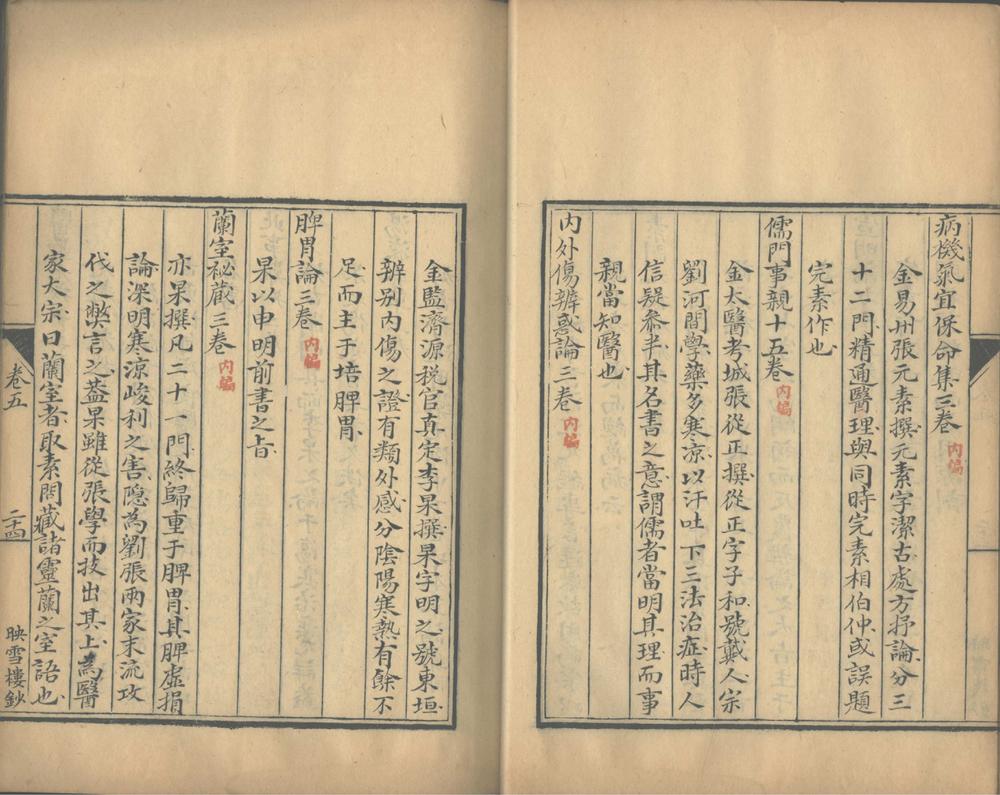 病機氣宜保命集三卷 内編
金易州張元素撰元素字潔古處方抒論分三
十二門精通醫理與同時完素相伯仲或誤題
完素作也
儒門事親十五卷 内編
金太醫考城張從正撰從正字子和號戴人宗
劉河間學藥多寒凉以汗吐下三法治症時人
信疑叅半其名書之意謂儒者當明其理而事
親當知醫也
内外傷辨惑論三卷 内編
金監濟源税官真定李杲撰杲字明之號東垣
辨别内傷之證有類外感分陰陽寒熱有餘不
足而主于培脾胃
脾胃論三卷 内編
杲以申明前書之旨
蘭室祕藏三卷 内編
亦杲撰凡二十一門終歸重于脾胃其脾虚損
論深明寒凉峻利之害隐為劉張兩家末流攻
伐之獘言之葢杲雖從張學而技出其上為醫
家大宗曰蘭室者取素問藏諸靈蘭之室語也
卷五
二十四
映雪樓鈔